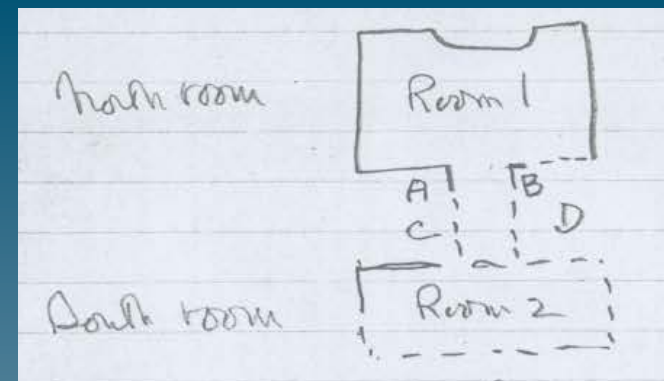 North room
Room 1
A B
C D
South room
Room 2